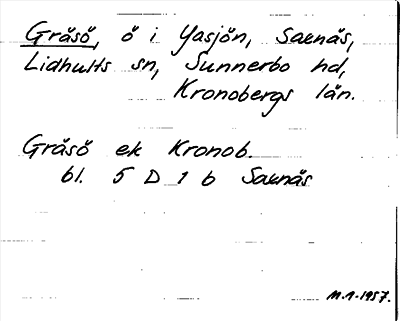 Gråsö, ö i Yasjön, Saxnäs,
Lidhults sn, Sunnerbo hd,
Kronobergs län.
Gråsö ek Kronob.
bl. 5 D 1 b Saxnäs
M.A-1957.